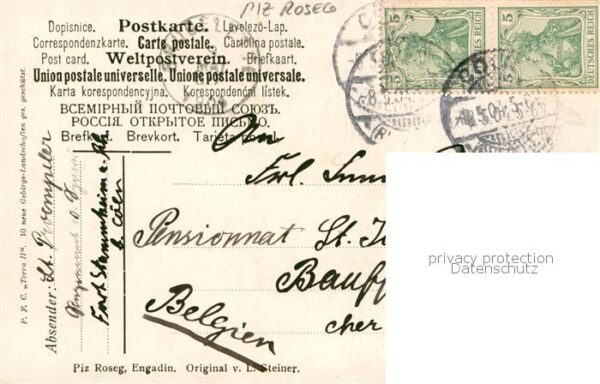 PIZ ROSEG
Dopisnice. Postkarte. Levelező-Lap.
Correspondenzkarte. Carte postale. Cartolina postale.
Post card. Weltpostverein. Briefkaart.
Union postale universelle. Unione postale universale.
Karta korespondencyjna. Korespondenční lístek.
ВСЕМІРНЫЙ ПОЧТОВЫЙ СОЮЗЪ.
РОССІЯ. ОТКРЫТОЕ ПИСЬМО.
Brefkort. Brevkort. Tarjeta postal.
5 5
DEUTSCHES REICH DEUTSCHES REICH
An
Frl.
Pensionnat St.
Bauff
cher
Belgien
privacy protection
Datenschutz
P. E. C. „Terra II“. 10 neue Gebirgs-Landschaften ges. geschützt.
Absender: Lt.
Fort Stammheim a. Rh.
b. Cöln
Piz Roseg, Engadin. Original v. L. Steiner.